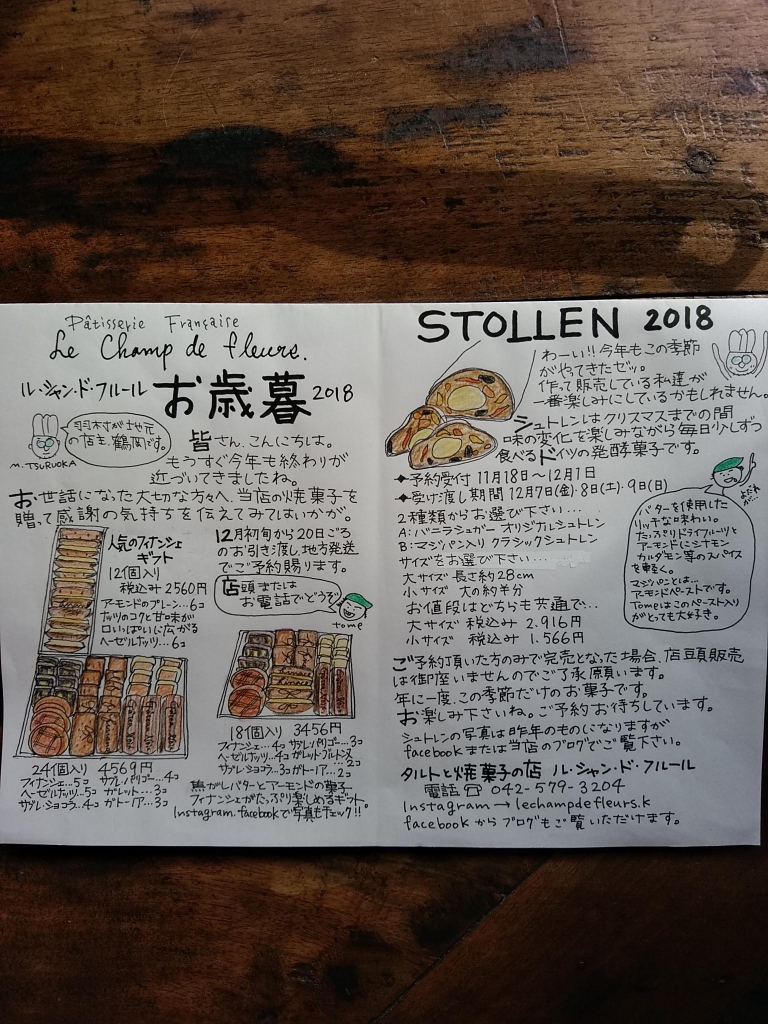 Pâtisserie Française
Le Champ de fleurs.
ル・シャン・ド・フルール お歳暮 2018
羽村さが地元
の店主、鶴岡です。
M.TSURUOKA
皆さん、こんにちは。
もうすぐ今年も終わりが
近づいてきましたね。
お世話になった大切な方々へ、当店の焼菓子を
贈って感謝の気持ちを伝えてみてはいかが。
人気のフィナンシェ
ギフト
12個入り
税込み 2560円
アーモンドのプレーン…6コ
ナッツのコクと甘味が
口いっぱいに広がる
ヘーゼルナッツ…6コ
12月初旬から20日ごろ
のお引き渡し、地方発送
でご予約賜ります。
店頭または
お電話でどうぞ
tome
24個入り 4569円
フィナンシェ…5コ サブレパリゴー…4コ
ヘーゼルナッツ…5コ ガレット…3コ
サブレショコラ…4コ ガトーバー…3コ
18個入り 3456円
フィナンシェ…4コ サブレパリゴー…3コ
ヘーゼルナッツ…4コ ガレットブルトンヌ…2コ
サブレショコラ…3コ ガトーバー…2コ
焦がしバターとアーモンドの菓子
フィナンシェがたっぷり楽しめるギフト。
Instagram.facebookで写真もチェック!!
STOLLEN 2018
わーい!!今年もこの季節
がやってきたゼッ。
作って販売している私達が
一番楽しみにしているかもしれません。
シュトレンはクリスマスまでの間
味の変化を楽しみながら毎日少しずつ
食べるドイツの発酵菓子です。
✦予約受付 11月18日〜12月1日
✦受け渡し期間 12月7日(金)・8日(土)・9日(日)
2種類からお選び下さい…
A:バニラシュガー オリジナルシュトレン
B:マジパン入り クラシックシュトレン
サイズをお選び下さい…
大サイズ 長さ約28cm
小サイズ 大の約半分
お値段はどちらも共通で…
大サイズ 税込み 2.916円
小サイズ 税込み 1.566円
よだれが…
バターを使用した
リッチな味わい。
たっぷりドライフルーツと
アーモンドにシナモン
カルダモン等のスパイス
を軽く。
マジパンとは…
アーモンドペーストです。
Tomeはこのペースト入り
がとっても大好き。
ご予約頂いた方のみで完売となった場合、店頭販売
は御座いませんのでご了承願います。
年に一度、この季節だけのお菓子です。
お楽しみ下さいね。ご予約お待ちしています。
シュトレンの写真は昨年のものになりますが
facebookまたは当店のブログでご覧下さい。
タルトと焼菓子の店 ル・シャン・ド・フルール
電話☎ 042-579-3204
Instagram→lechampdefleurs.k
facebookからブログもご覧いただけます。